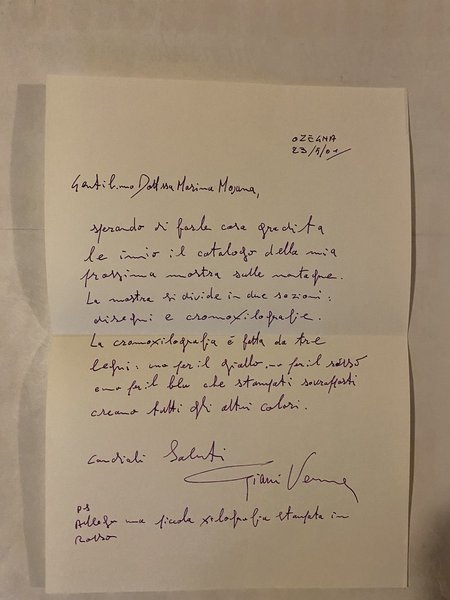 OZEGNA
23/5/01
Gentil.mo Dott.ssa Marina Mojana,
sperando di farle cosa gradita
le invio il catalogo della mia
prossima mostra sulle masche.
La mostra si divide in due sezioni:
disegni e cromoxilografie.
La cromoxilografia è fatta da tre
legni: uno per il giallo, uno per il rosso
e uno per il blu che stampati sovrapposti
creano tutti gli altri colori.
Cordiali Saluti
Gianni Verna
PS
Allego una piccola xilografia stampata in
rosso